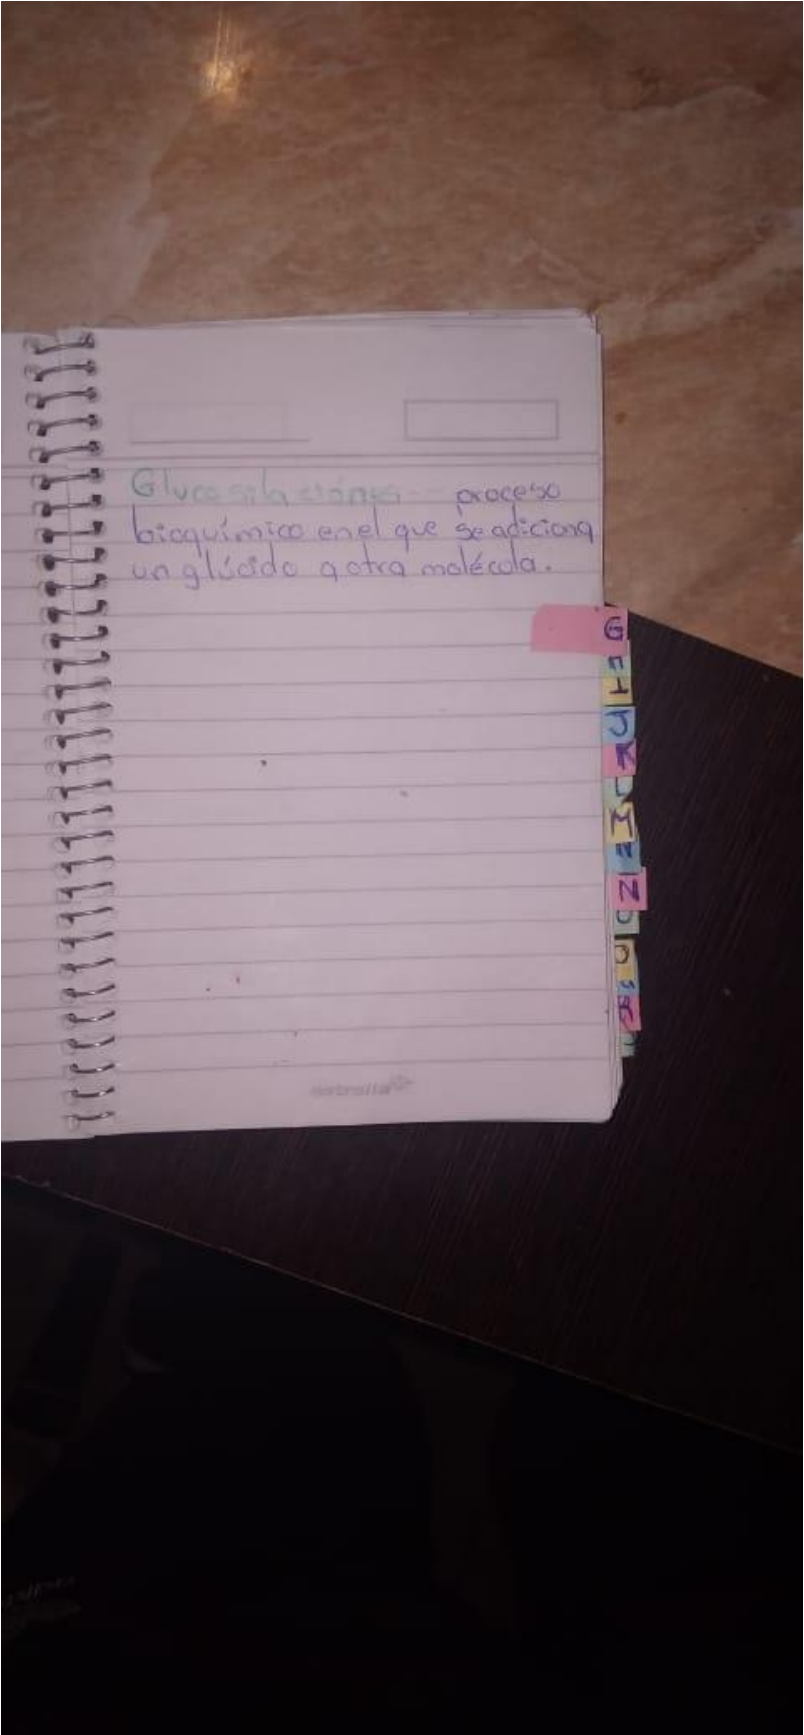 Glucosilaciónes -- proceso
bioquímico en el que se adiciona
un glúcido a otra molécula.
G
H
I
J
K
L
M
N
Ñ
O